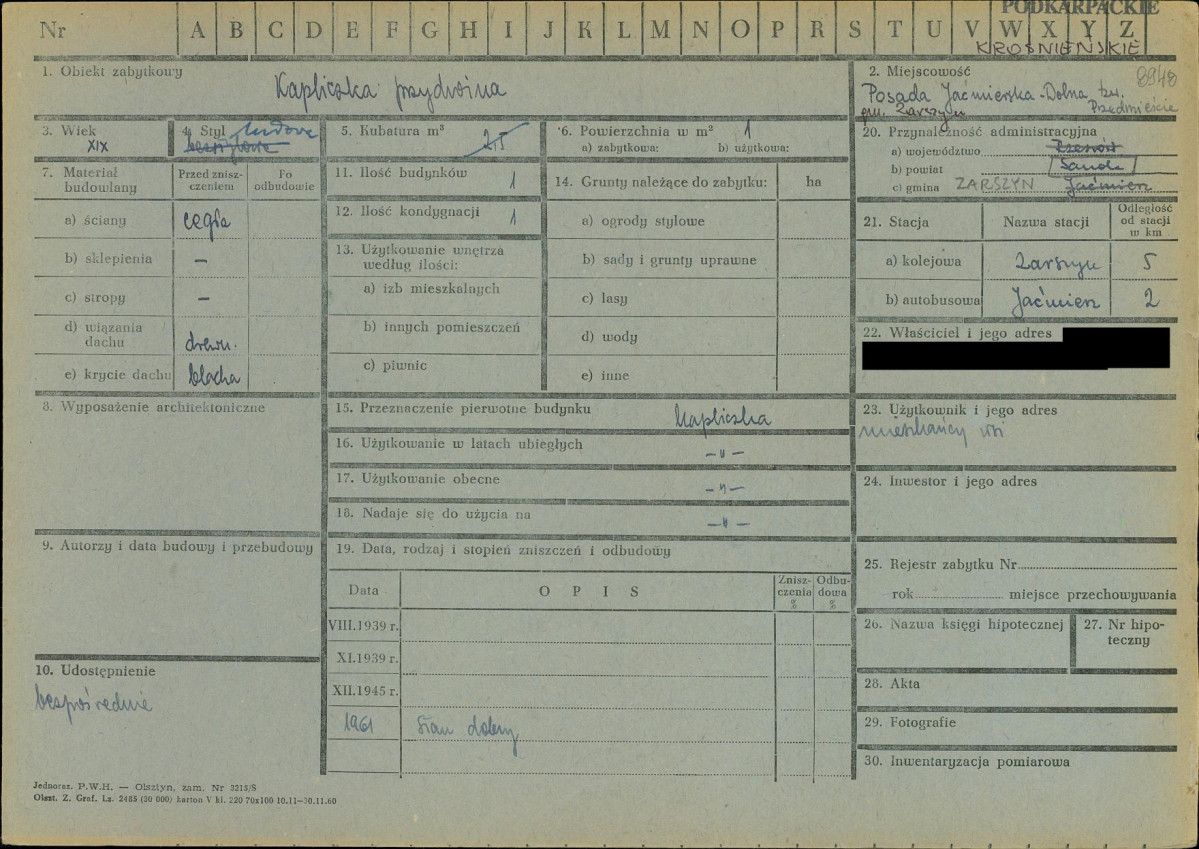 PODKARPACKIE
Nr A B C D E F G H I J K L M N O P R S T U V W X Y Z
KROŚNIEŃSKIE
1. Obiekt zabytkowy
Kapliczka przydrożna
2. Miejscowość 8948
Posada Jaćmierska-Dolna tzw.
gm. Zarszyn Przedmieście
3. Wiek
XIX
4. Styl ludowy
bezstylowa
5. Kubatura m³
2,5
6. Powierzchnia w m² 1
a) zabytkowa: b) użytkowa:
20. Przynależność administracyjna
a) województwo Rzeszów
b) powiat Sanok
c) gmina ZARSZYN Jaćmierz
7. Materiał budowlany
Przed zniszczeniem
Po odbudowie
a) ściany cegła
b) sklepienia –
c) stropy –
d) wiązania dachu drewn.
e) krycie dachu blacha
11. Ilość budynków 1
12. Ilość kondygnacji 1
13. Użytkowanie wnętrza
według ilości:
a) izb mieszkalnych
b) innych pomieszczeń
c) piwnic
14. Grunty należące do zabytku: ha
a) ogrody stylowe
b) sady i grunty uprawne
c) lasy
d) wody
e) inne
21. Stacja Nazwa stacji Odległość od stacji w km
a) kolejowa Zarszyn 5
b) autobusowa Jaćmierz 2
22. Właściciel i jego adres
8. Wyposażenie architektoniczne
15. Przeznaczenie pierwotne budynku kapliczka
16. Użytkowanie w latach ubiegłych –"–
17. Użytkowanie obecne –"–
18. Nadaje się do użycia na –"–
23. Użytkownik i jego adres
mieszkańcy wsi
24. Inwestor i jego adres
9. Autorzy i data budowy i przebudowy
19. Data, rodzaj i stopień zniszczeń i odbudowy
Data OPIS Zniszczenia % Odbudowa %
VIII.1939 r.
XI.1939 r.
XII.1945 r.
1961 Stan dobry
25. Rejestr zabytku Nr
rok miejsce przechowywania
26. Nazwa księgi hipotecznej
27. Nr hipoteczny
10. Udostępnienie
bezpośrednie
28. Akta
29. Fotografie
30. Inwentaryzacja pomiarowa
Jednoraz. P.W.H. — Olsztyn, zam. Nr 3215/S
Olszt. Z. Graf. Lz. 2485 (30 000) karton V kl. 220 70x100 10.11—30.11.60